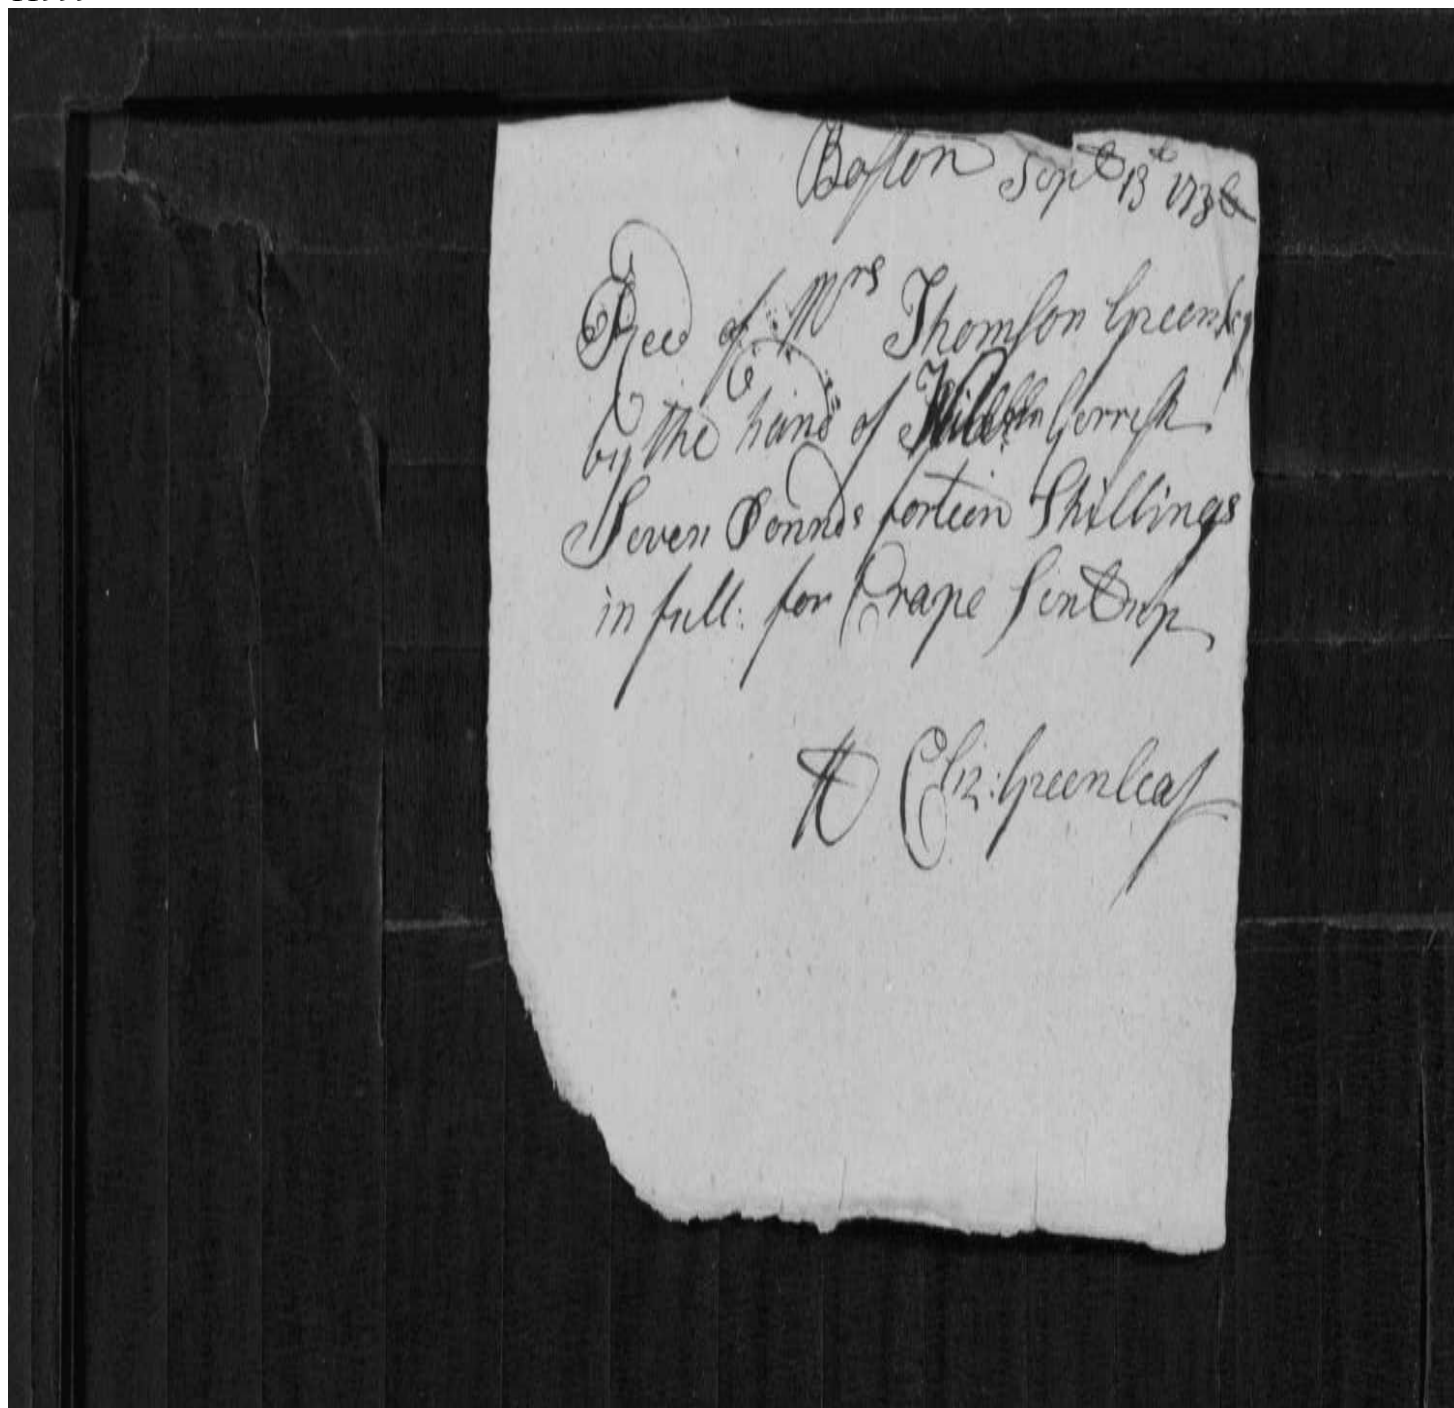 Boston Sepr 13th 173
Reed of Mrs Thomson Greenleaf
by the hand of Gerrish
Seven Pounds forteen Shillings
in full: for Crape
Eliz: Greenleaf